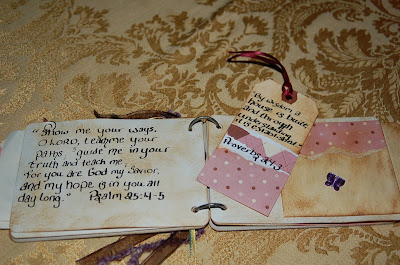 "Show me your ways,
O LORD, teach me your
paths, guide me in your
truth and teach me,
for you are God my Savior,
and my hope is in you all
day long." Psalm 25:4-5
"By wisdom a
house is built
and through
understanding
it is established"
Proverbs 24:3